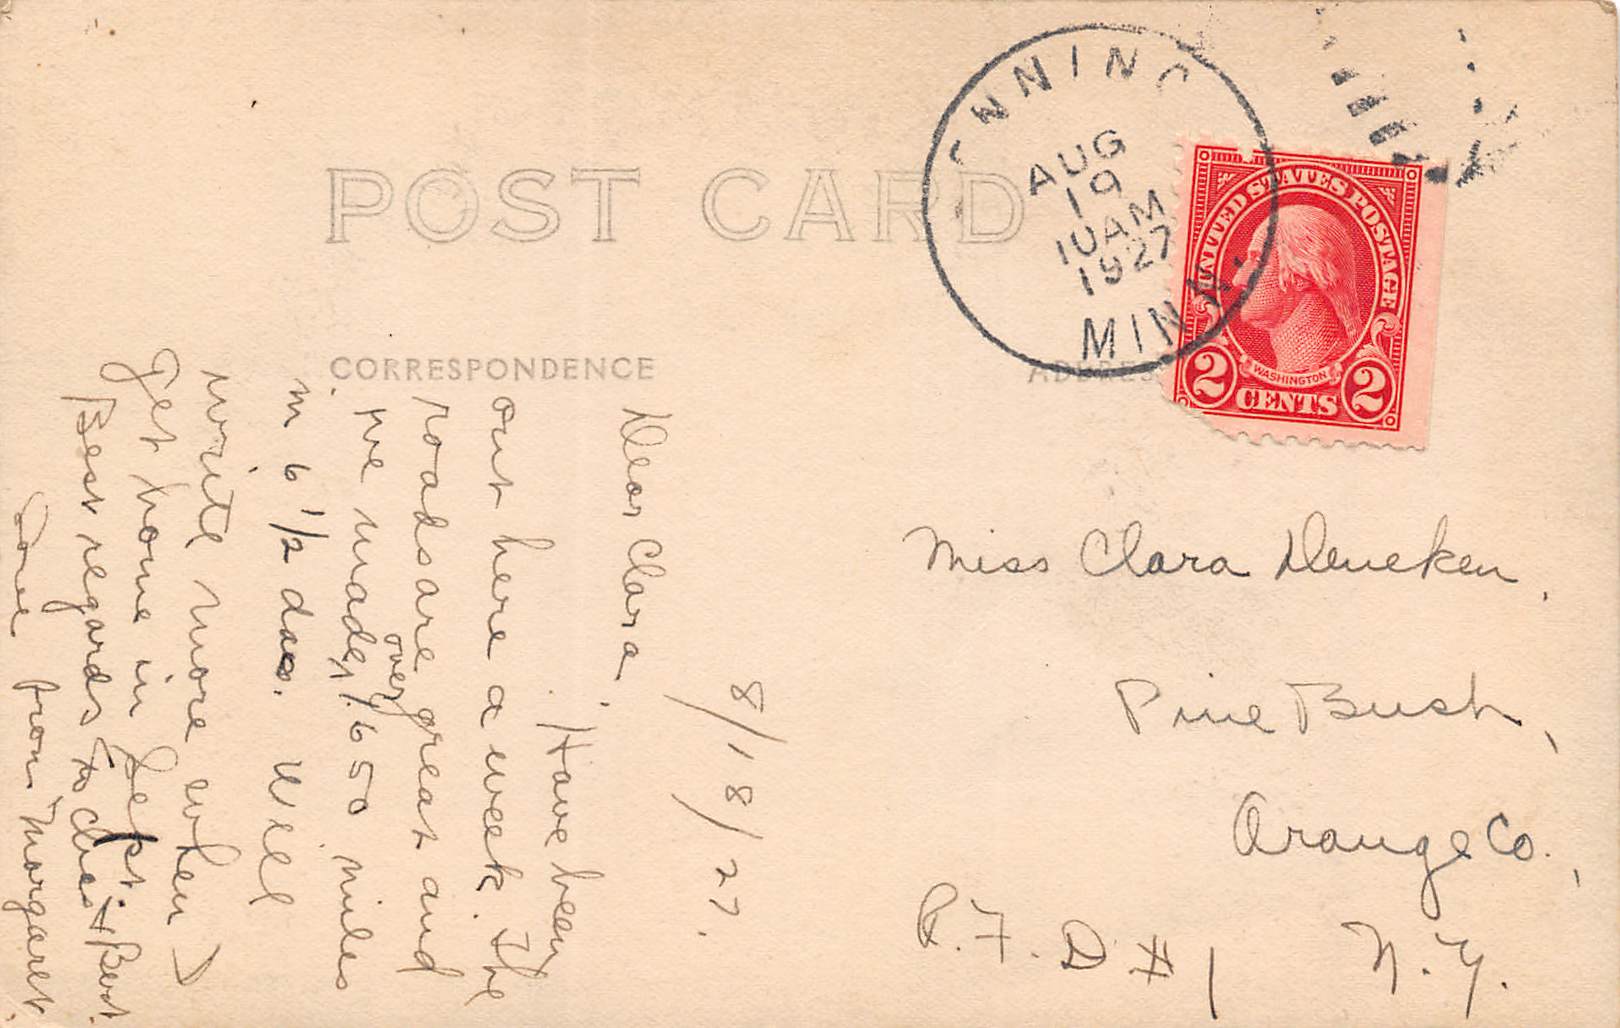 POST CARD
CORRESPONDENCE
AUG
19
10 AM
1927
MINN.
UNITED STATES POSTAGE
WASHINGTON
2 CENTS 2
8/18/27.
Dear Clara,
Have been
out here a week. The
roads are great and
we made over 1650 miles
in 6 1/2 days. Will
write more when I
get home in Sept.
Best regards to Chas & Bert.
Love from Margaret.
Miss Clara Deneken,
Pine Bush,
Orange Co.,
R.F.D #1 N.Y.